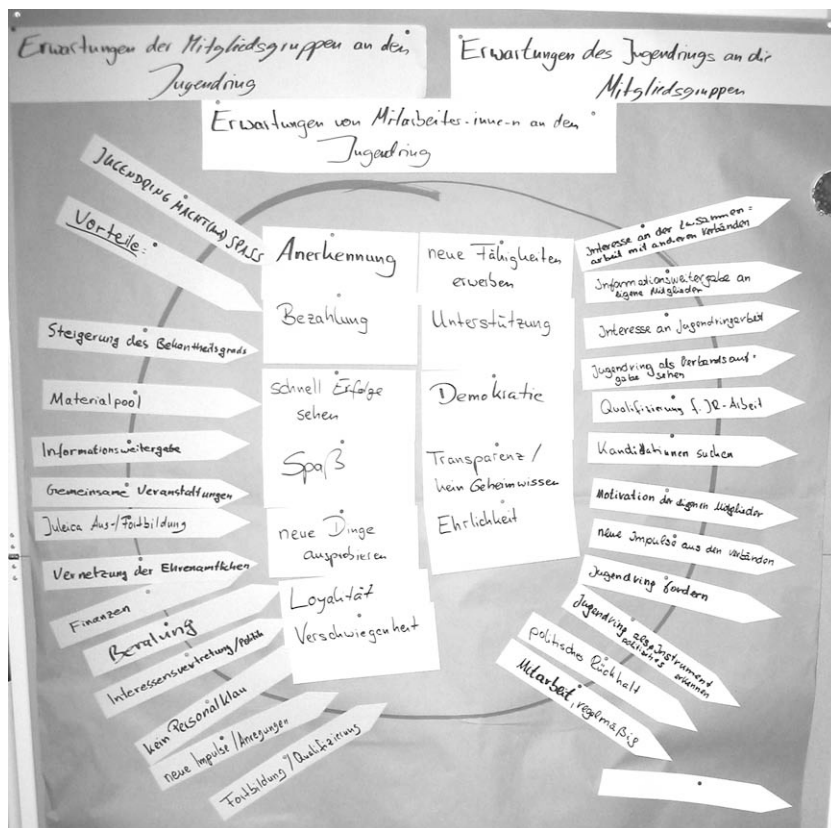 Erwartungen der Mitgliedsgruppen an den
Jugendring
Erwartungen des Jugendrings an die
Mitgliedsgruppen
Erwartungen von Mitarbeiter-inne-n an den
Jugendring
JUGENDRING MACHT(UND) SPASS
Vorteile:
Steigerung des Bekantheitsgrads
Materialpool
Informationsweitergabe
Gemeinsame Veranstaltungen
Juleica Aus-/Fortbildung
Vernetzung der Ehrenamtlichen
Finanzen
Beratung
Interessensvertretung/Politik
kein Personalklau
neue Impulse/Anregungen
Fortbildung/Qualifizierung
Anerkennung
Bezahlung
schnell Erfolge
sehen
Spaß
neue Dinge
ausprobieren
Loyalität
Verschwiegenheit
neue Fähigkeiten
erwerben
Unterstützung
Demokratie
Transparenz/
kein Geheimwissen
Ehrlichkeit
Interesse an der Zusammen=
arbeit mit anderen Verbänden
Informationsweitergabe an
eigene Mitglieder
Interesse an Jugendringarbeit
Jugendring als Verbandsauf-
gabe sehen
Qualifizierung f. JR-Arbeit
KandidatInnen suchen
Motivation der eigenen Mitglieder
neue Impulse aus den Verbänden
Jugendring fordern
Jugendring als Instrument
politisches erkennen
politischer Rückhalt
Mitarbeit, regelmäßig